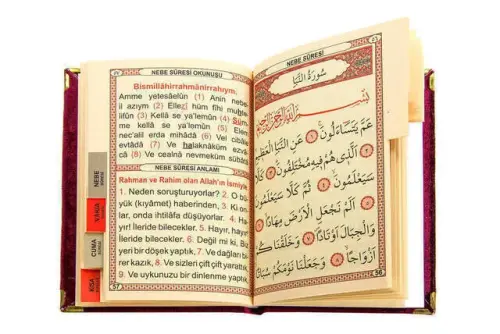 NEBE SÛRESİ OKUNUŞU
Bismillâhirrahmânirrahıym.
Amme yetesâelûn (1) Anin nebe
il azıym (2) Ellezî hüm fîhi muhte
lifûn (3) Kellâ se ya'lemûn (4) Süm
me kellâ se ya'lemûn (5) Elem
nec'alil erda mihâdâ (6) Vel cibâle
evtâdâ (7) Ve halaknâküm ezvâ
câ (8) Ve cealnâ nevmeküm sübâtâ
NEBE SÛRESİ ANLAMI
Rahman ve Rahîm olan Allah'ın İsmiyle
1. Neden soruşturuyorlar? 2. O
büyük (kıyâmet) haberinden, 3. Ki on
lar, onda ihtilâfa düşüyorlar. 4. Ha
yır! İleride bilecekler. 5. Hayır, hayır!
İleride bilecekler. 6. Değil mi ki, Biz
yeri bir döşek yaptık, 7. Ve dağları bi
rer kazık, 8. Ve sizleri çift çift yarattık,
9. Ve uykunuzu bir dinlenme yaptık,
57
NEBE
SÛRESİ
VÂKIA
SÛRESİ
CUMA
SÛRESİ
KISA
NEBE SÛRESİ
سُورَةُ النَّبَأِ
بِسْمِ اللهِ الرَّحْمٰنِ الرَّحِيمِ
عَمَّ يَتَسَاءَلُونَ ﴿١﴾ عَنِ النَّبَأِ الْعَظِيمِ
﴿٢﴾ الَّذِي هُمْ فِيهِ مُخْتَلِفُونَ ﴿٣﴾ كَلَّا
سَيَعْلَمُونَ ﴿٤﴾ ثُمَّ كَلَّا سَيَعْلَمُونَ ﴿٥﴾
اَلَمْ نَجْعَلِ الْاَرْضَ مِهَادًا ﴿٦﴾
وَالْجِبَالَ اَوْتَادًا ﴿٧﴾ وَخَلَقْنَاكُمْ
اَزْوَاجًا ﴿٨﴾ وَجَعَلْنَا نَوْمَكُمْ سُبَاتًا
56